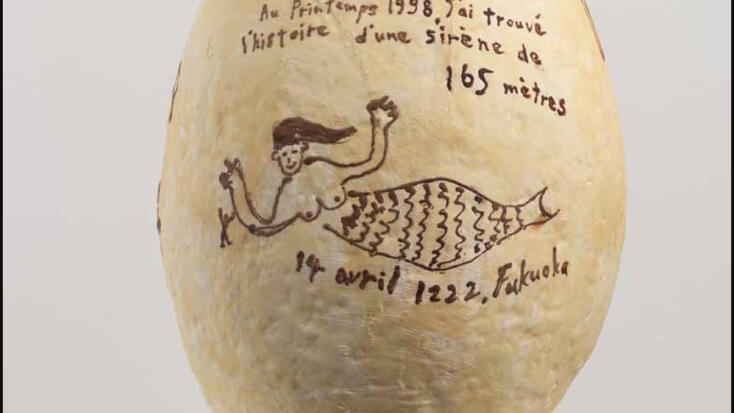 Au Printemps 1998, J'ai trouvé
l'histoire d'une sirène de
165 mètres
14 avril 1222, Fukuoka